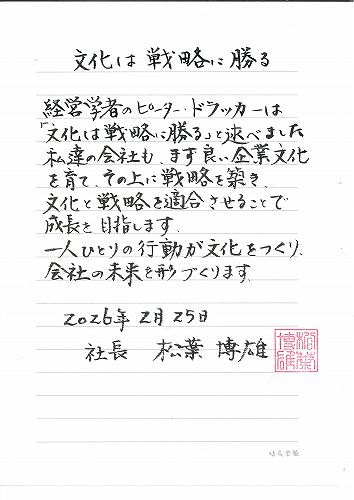 文化は戦略に勝る
経営学者のピーター・ドラッカーは
「文化は戦略に勝る」と述べました
私達の会社も、まず良い企業文化
を育て、その上に戦略を築き、
文化と戦略を適合させることで
成長を目指します。
一人ひとりの行動が文化をつくり、
会社の未来を形づくります。
2026年2月25日
社長 松葉博雄
松葉博雄